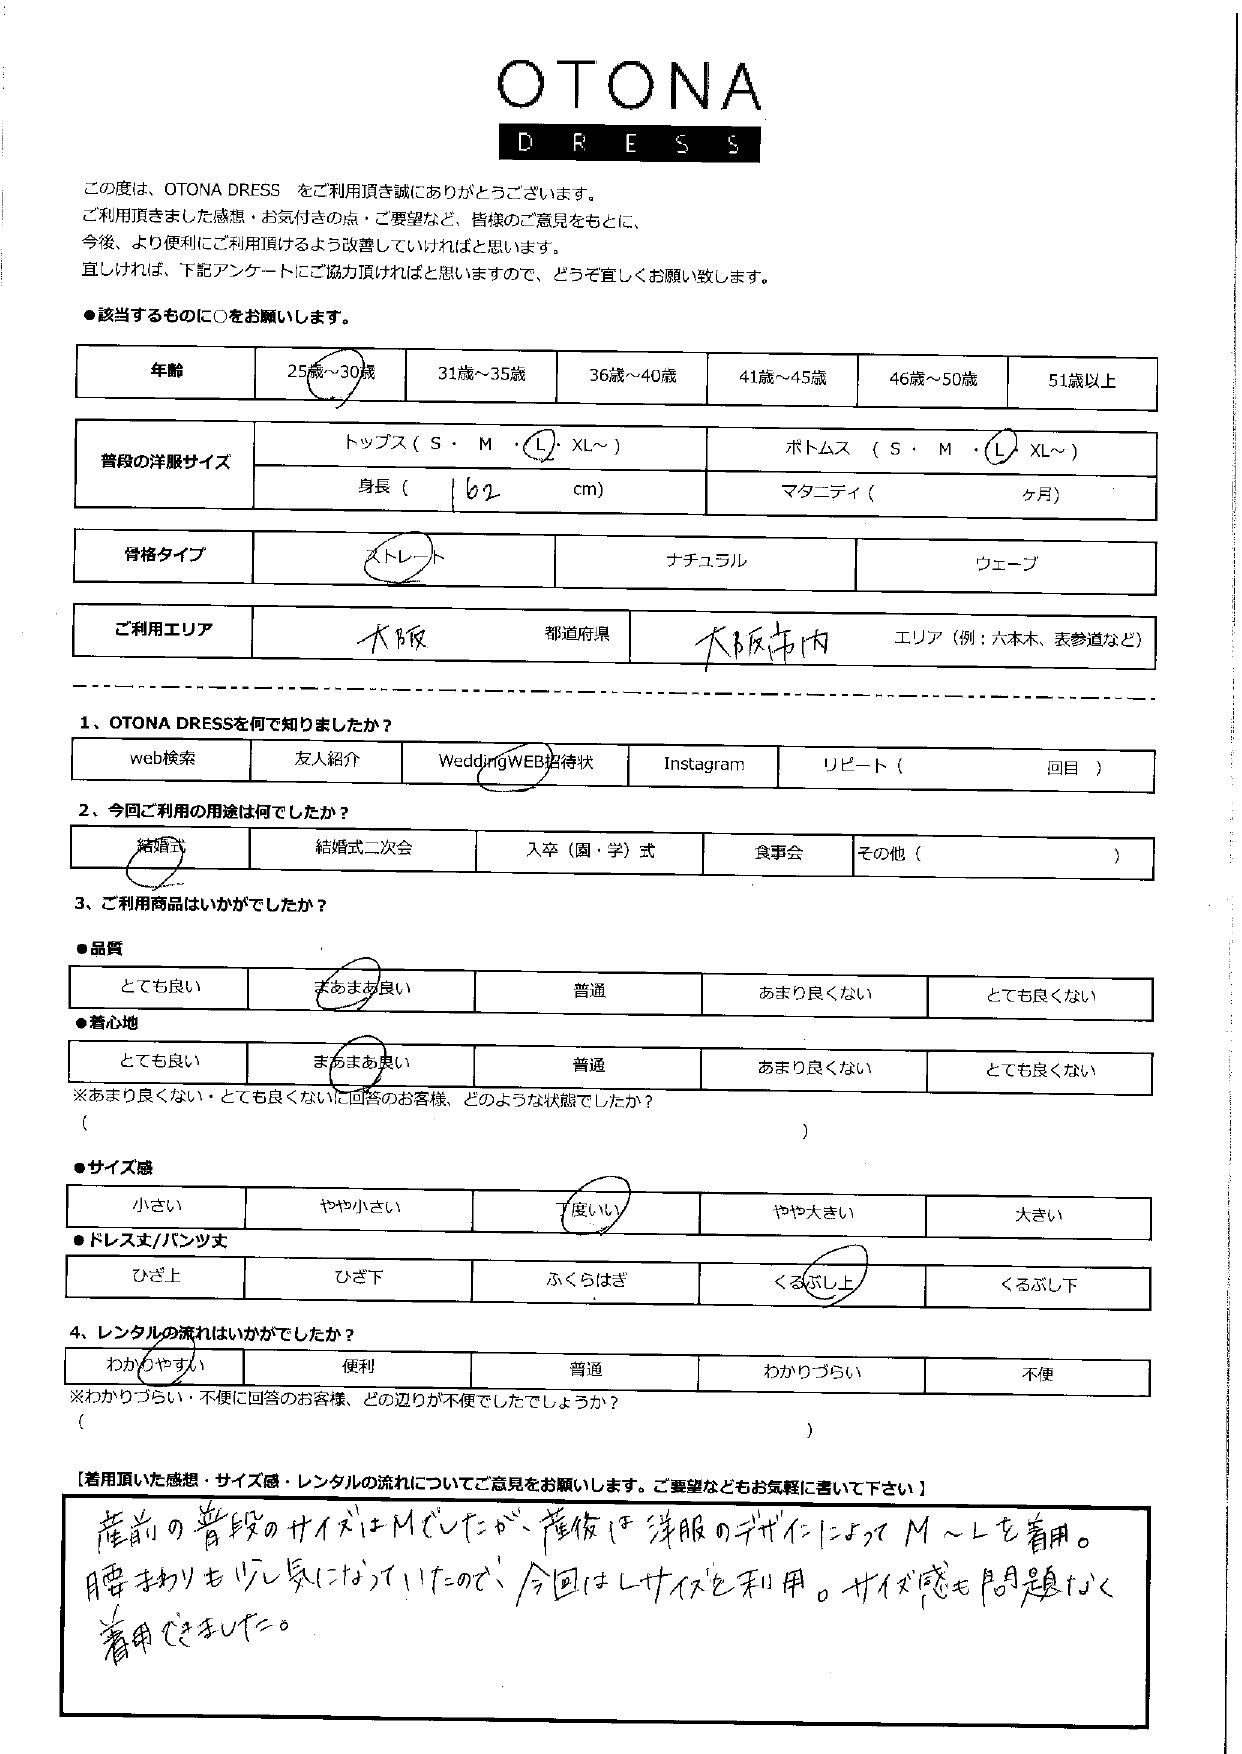 OTONA
DRESS
この度は、OTONA DRESS　をご利用頂き誠にありがとうございます。
ご利用頂きました感想・お気付きの点・ご要望など、皆様のご意見をもとに、
今後、より便利にご利用頂けるよう改善していければと思います。
宜しければ、下記アンケートにご協力頂ければと思いますので、どうぞ宜しくお願い致します。
●該当するものに○をお願いします。
年齢 25歳～30歳 31歳～35歳 36歳～40歳 41歳～45歳 46歳～50歳 51歳以上
普段の洋服サイズ トップス ( S ・ M ・ L ・ XL～ ) ボトムス ( S ・ M ・ L ・ XL～ )
身長 ( 162 cm) マタニティ ( ヶ月)
骨格タイプ ストレート ナチュラル ウェーブ
ご利用エリア 大阪 都道府県 大阪市内 エリア（例：六本木、表参道など）
1、OTONA DRESSを何で知りましたか？
web検索 友人紹介 WeddingWEB招待状 Instagram リピート ( 回目 )
2、今回ご利用の用途は何でしたか？
結婚式 結婚式二次会 入卒（園・学）式 食事会 その他 ( )
3、ご利用商品はいかがでしたか？
●品質
とても良い まあまあ良い 普通 あまり良くない とても良くない
●着心地
とても良い まあまあ良い 普通 あまり良くない とても良くない
※あまり良くない・とても良くないに回答のお客様、どのような状態でしたか？
( )
●サイズ感
小さい やや小さい 丁度いい やや大きい 大きい
●ドレス丈/パンツ丈
ひざ上 ひざ下 ふくらはぎ くるぶし上 くるぶし下
4、レンタルの流れはいかがでしたか？
わかりやすい 便利 普通 わかりづらい 不便
※わかりづらい・不便に回答のお客様、どの辺りが不便でしたでしょうか？
( )
【着用頂いた感想・サイズ感・レンタルの流れについてご意見をお願いします。ご要望などもお気軽に書いて下さい】
産前の普段のサイズはMでしたが、産後は洋服のデザインによってM～Lを着用。
腰まわりも少し気になっていたので、今回はLサイズを利用。サイズ感も問題なく
着用できました。